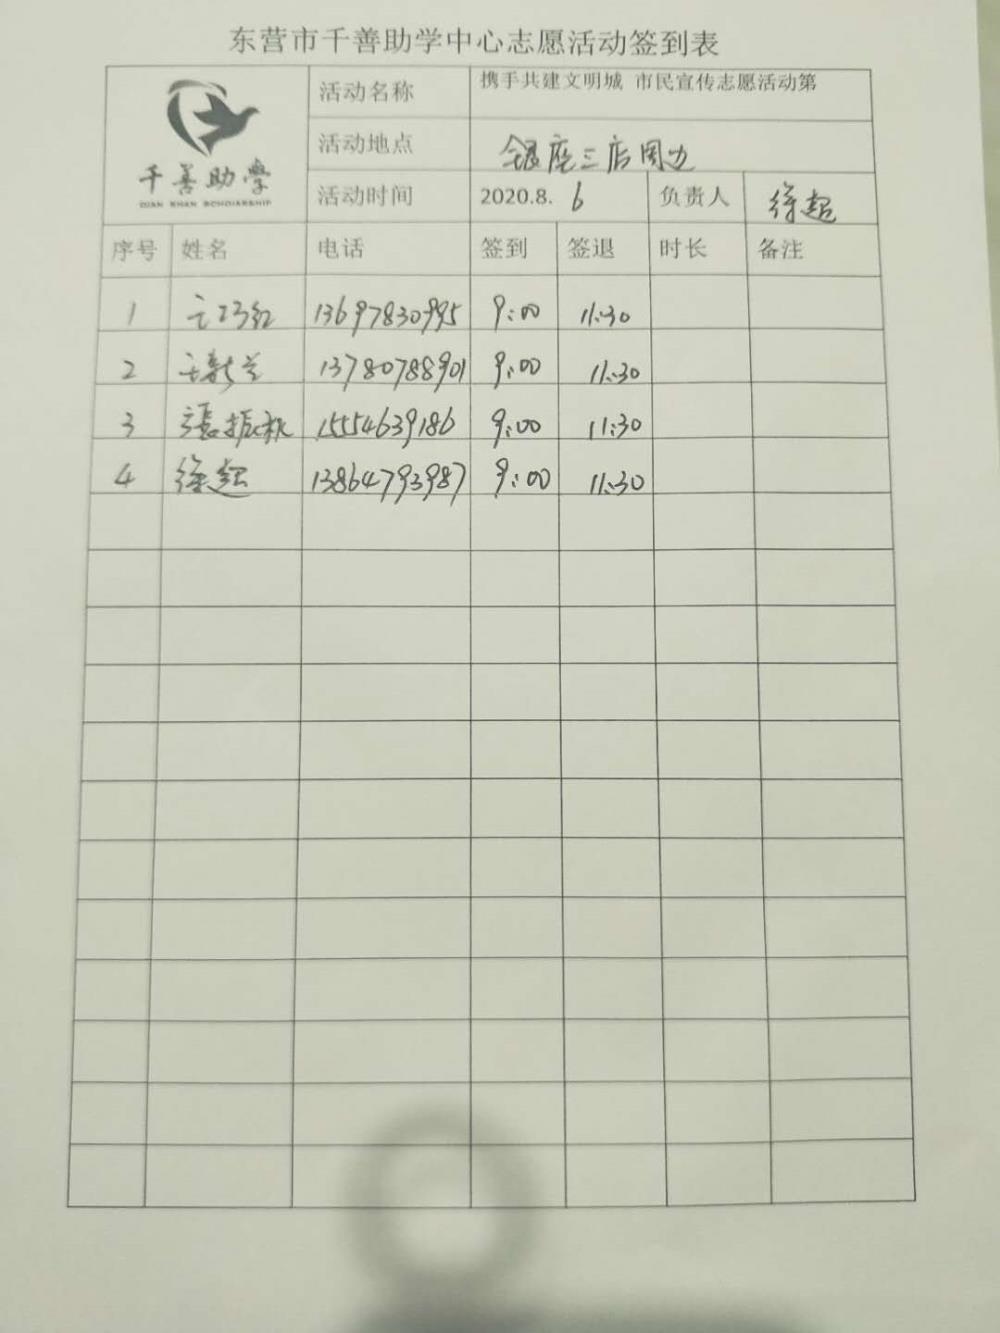 东营市千善助学中心志愿活动签到表
千善助学
QIAN SHAN SCHOLARSHIP
活动名称 携手共建文明城 市民宣传志愿活动第
活动地点 银座三店周边
活动时间 2020.8. 6 负责人 徐超
序号 姓名 电话 签到 签退 时长 备注
1 巧红 13697830995 9:00 11:30
2 13780788901 9:00 11:30
3 張振 15554639186 9:00 11:30
4 徐超 13864793987 9:00 11:30